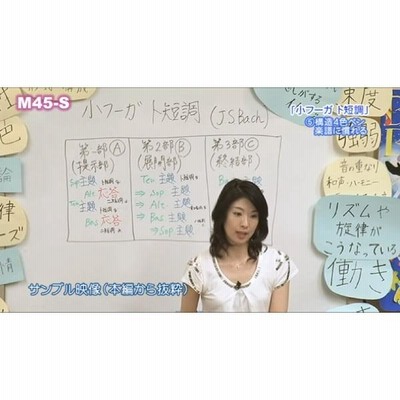 M45-S
小フーガ ト短調 (J.S.Bach)
「小フーガ ト短調」
⑤構造4色ペン
楽譜に慣れる
第一部 Ⓐ
(提示部)
Sop 主題
Alt 応答
Ten 主題
Bas 応答
第2部 Ⓑ
(展開部)
Ten 主題
⇒ Sop 主題
⇒ Alt 主題
⇒ Bas 主題
⇒ Sop 主題
第3部 Ⓒ
(終結部)
主題
速度
強弱
音の重なり
和声・ハーモニー
リズムや
旋律が
こうなっている
働き
色
律
情
サンプル映像(本編から抜粋)